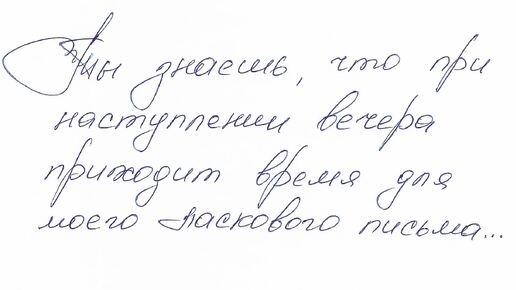 Ты знаешь, что при
наступлении вечера
приходит время для
моего ласкового письма...